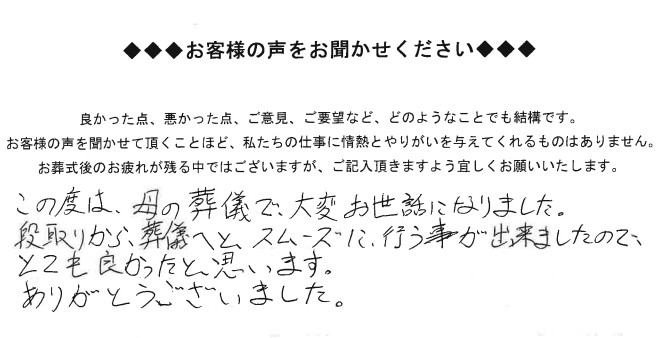 ◆◆◆お客様の声をお聞かせください◆◆◆
良かった点、悪かった点、ご意見、ご要望など、どのようなことでも結構です。
お客様の声を聞かせて頂くことほど、私たちの仕事に情熱とやりがいを与えてくれるものはありません。
お葬式後のお疲れが残る中ではございますが、ご記入頂きますよう宜しくお願いいたします。
この度は、母の葬儀で、大変お世話になりました。
段取りから、葬儀へと、スムーズに、行う事が出来ましたので、
とても良かったと、思います。
ありがとうございました。